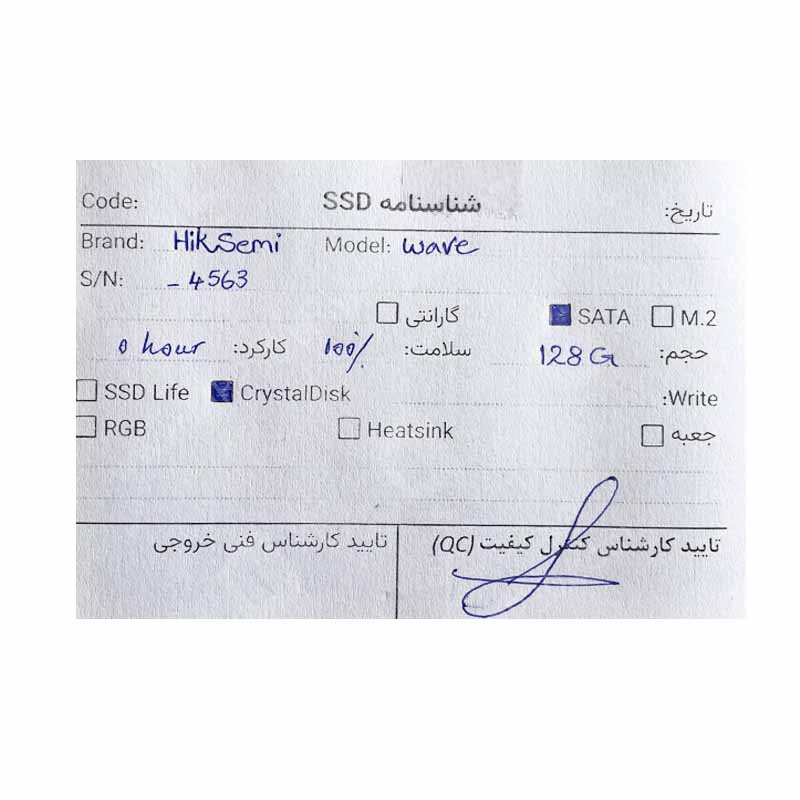 Code: شناسنامه SSD تاریخ:
Brand: HikSemi Model: wave
S/N: - 4563
گارانتی SATA M.2
حجم: 128G سلامت: 100% کارکرد: 0 hour
SSD Life CrystalDisk Write:
RGB Heatsink جعبه
تایید کارشناس کنترل کیفیت (QC) تایید کارشناس فنی خروجی